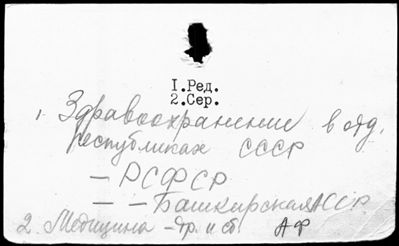 I.Ред.
2.Сер.
1. Здравоохранение в отд.
республиках СССР
— РСФСР
— — Башкирская АССР
2. Медицина — др. и ст. АФ